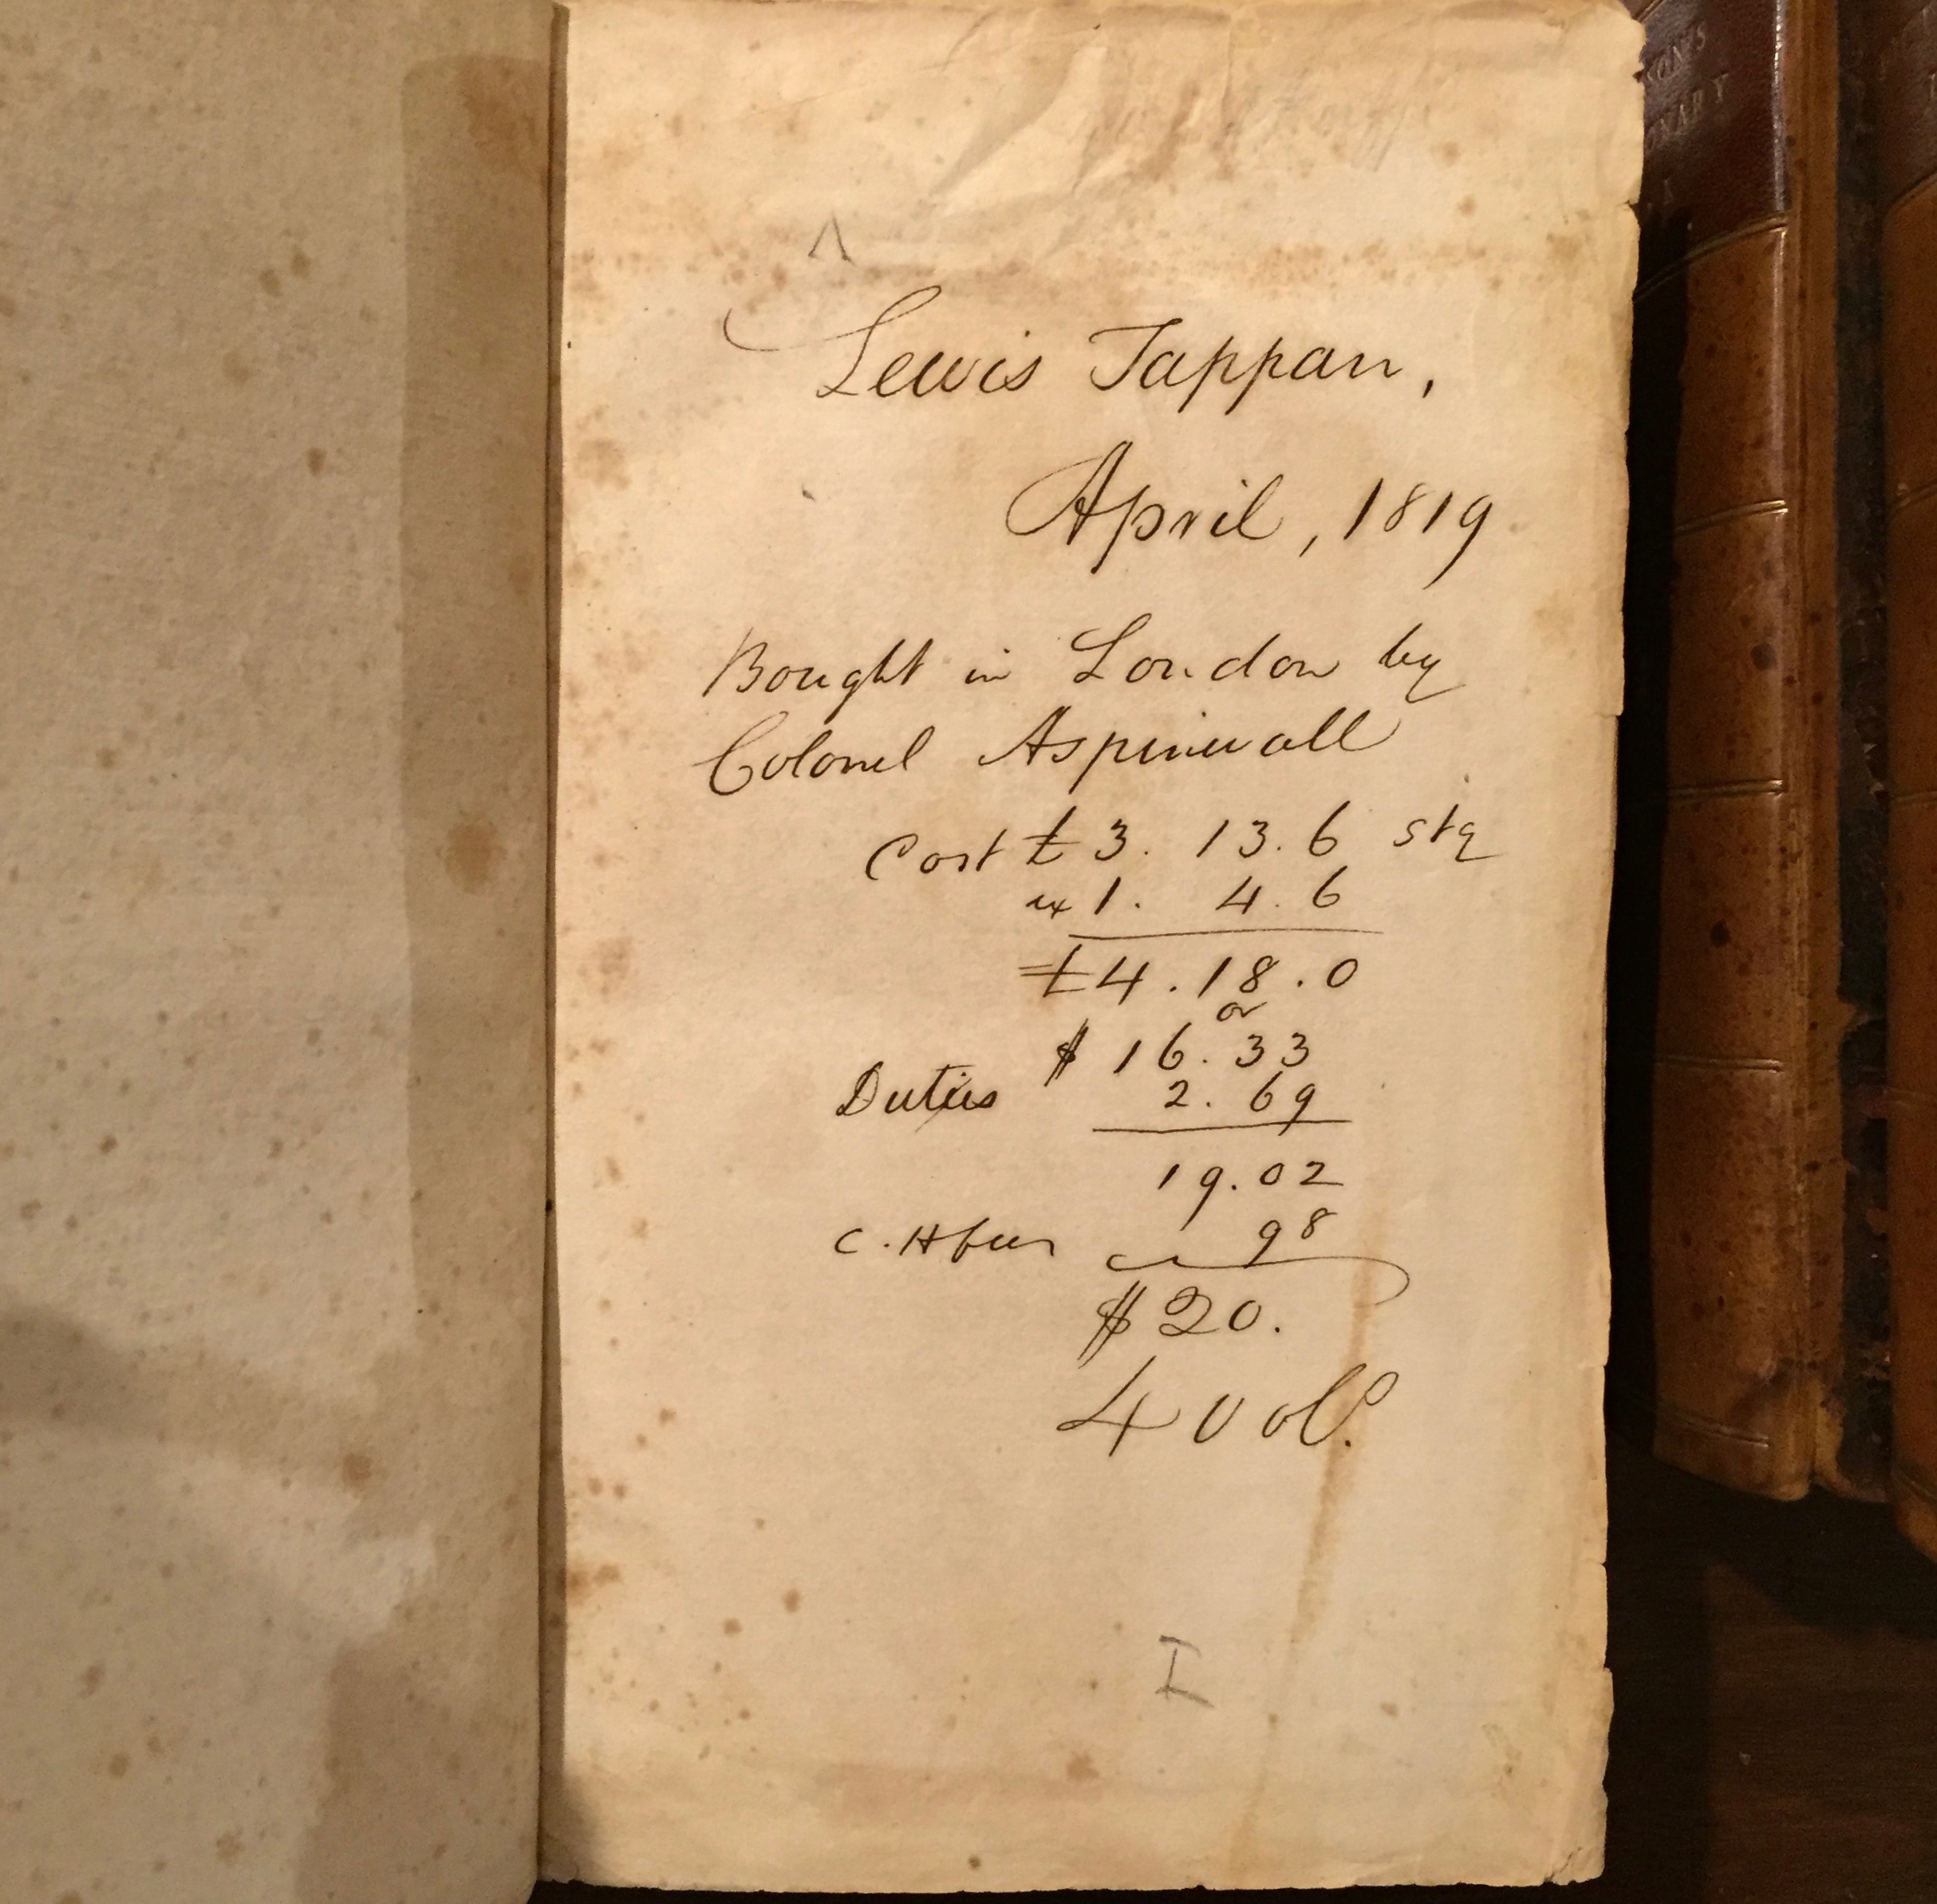 Lewis Tappan,
April, 1819
Bought in London by
Colonel Aspinwall
Cost £3. 13. 6 stg
ex 1. 4. 6
£4. 18. 0
or
$ 16. 33
Duties 2. 69
19. 02
C. H fees 98
$20.
4 vol.
I